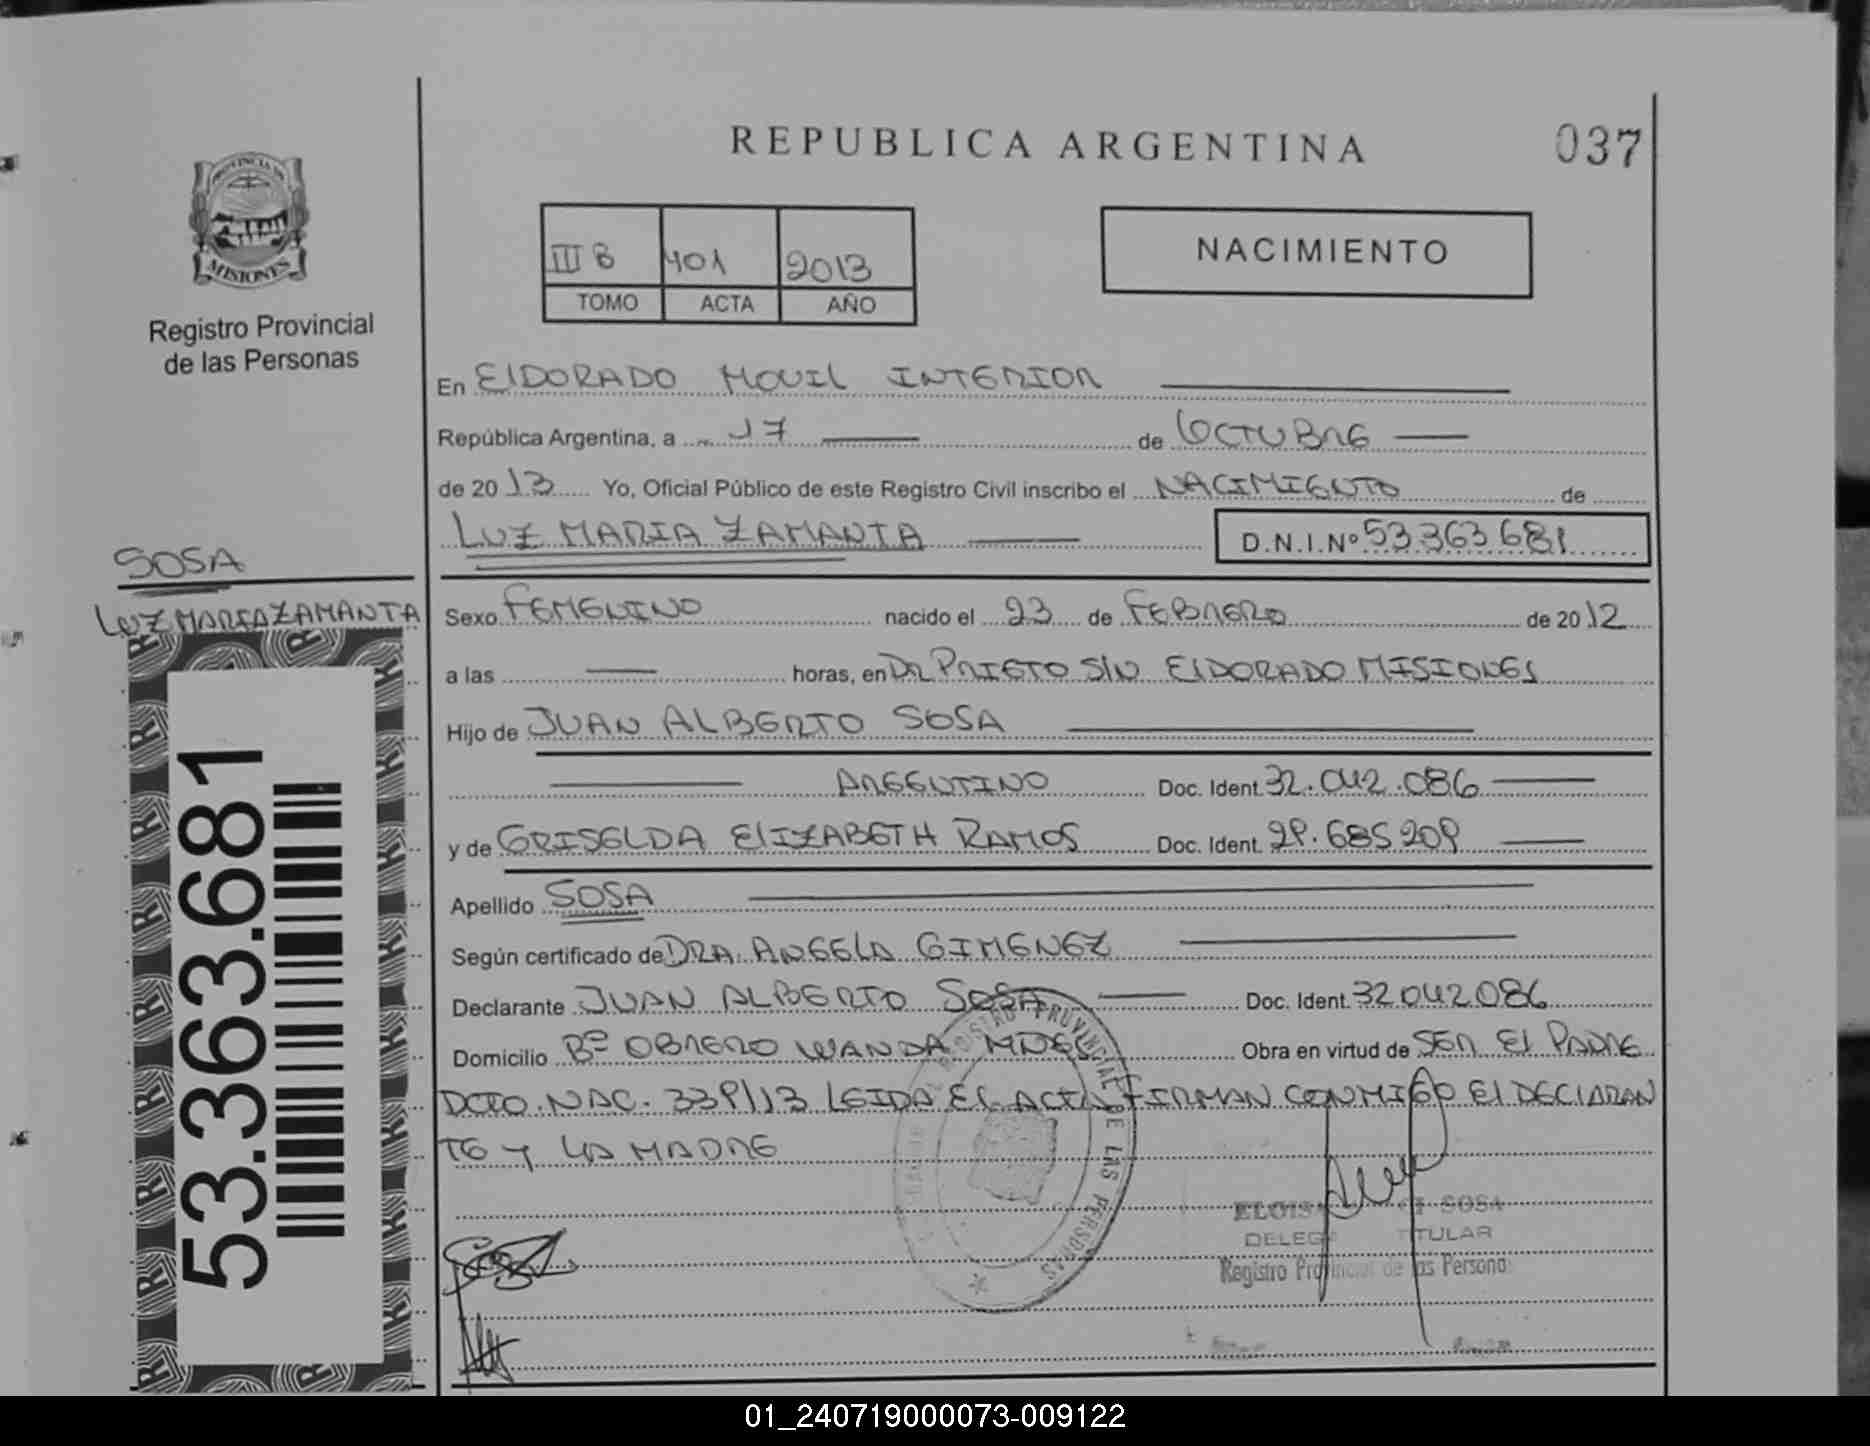 REPUBLICA ARGENTINA
037
PROVINCIA DE
MISIONES
Registro Provincial
de las Personas
III B 401 2013
TOMO ACTA AÑO
NACIMIENTO
En ElDORADO MOVIL INTERIOR
República Argentina, a 17 de OCTUBRE
de 2013 Yo, Oficial Público de este Registro Civil inscribo el NACIMIENTO de
LUZ MARIA ZAMANTA D.N.I.Nº 53.363.681
SOSA
LUZ MARIA ZAMANTA
Sexo FEMENINO nacido el 23 de FEBRERO de 2012
a las horas, en DR PRIETO S/N ElDORADO MISIONES
Hijo de JUAN ALBERTO SOSA
ARGENTINO Doc. Ident. 32.042.086
y de GRISELDA ElIZABETH RAMOS Doc. Ident. 29.685209
Apellido SOSA
Según certificado de DRA. ANGELA GIMENEZ
Declarante JUAN ALBERTO SOSA Doc. Ident. 32042086
Domicilio Bº OBRERO WANDA MNES Obra en virtud de SER El PADRE
DCTO. NAC. 339/13 LEIDA EL ACTA FIRMAN CONMIGO El DECLARAN
TE Y LA MADRE
53.363.681
REGISTRO PROVINCIAL DE LAS PERSONAS
SOSA
TITULAR
Registro Provincial de las Personas
01_240719000073-009122